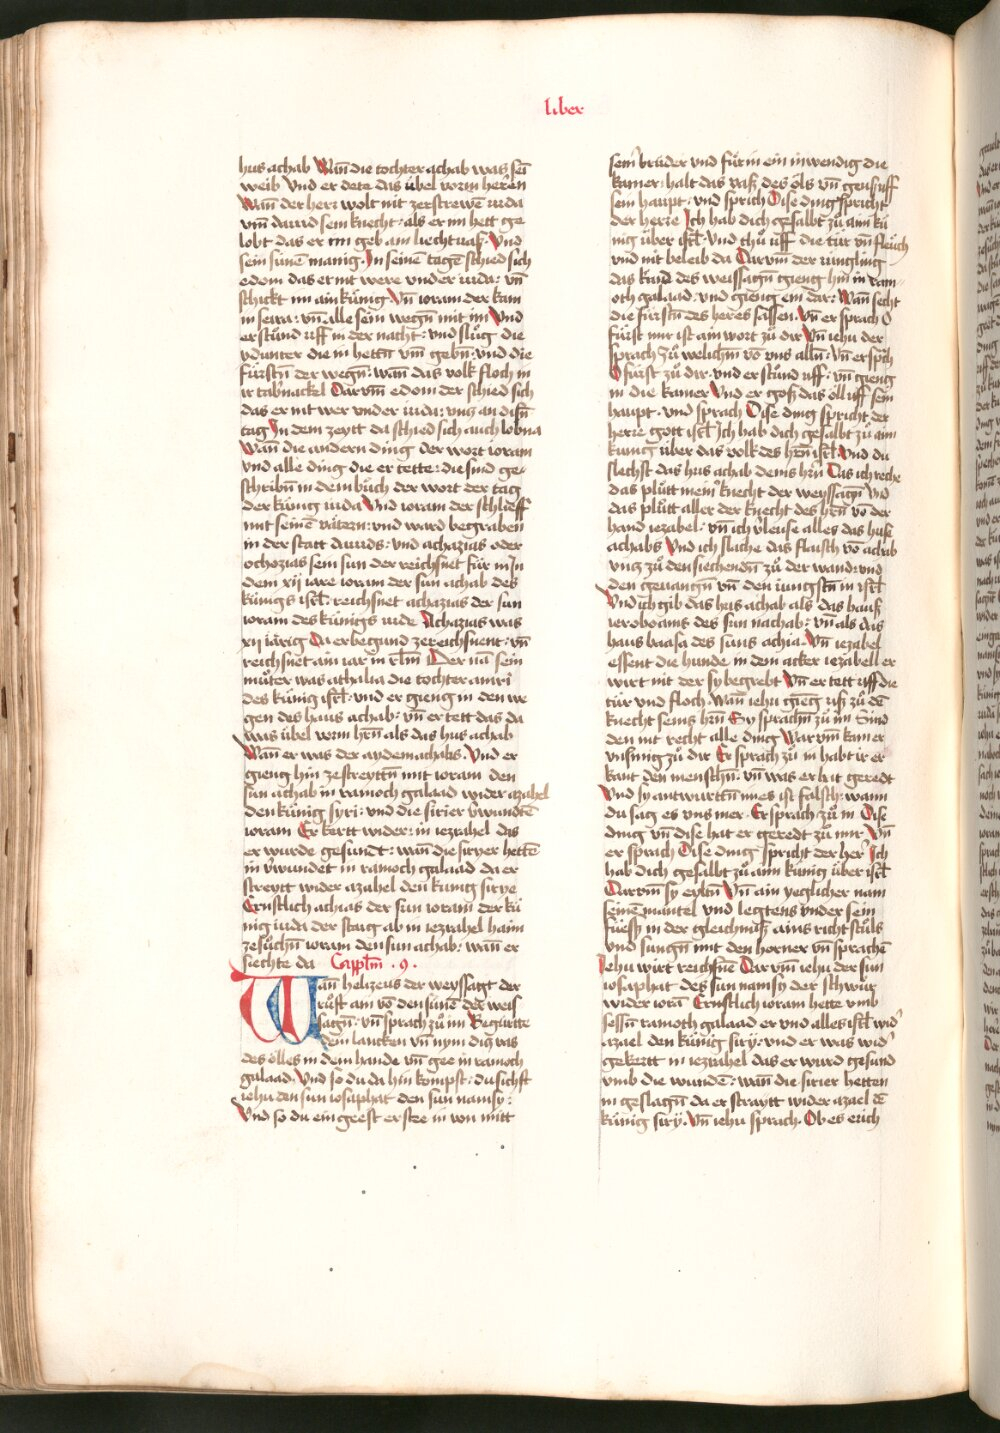 liber
hus achab Wañ die tochter achab was sei͂
weib Vnd er dete das übel vorm herren
Wañ der herr wolt nit zerstrewē iuda
vm̄ dauid sein knecht: als er im hett ge
lobt das er im geb ain liecht uaß. Vnd
sein sünē manig. In seinē tagē schied sich
edom das er nit were vnder iuda: vn̄
schickt im ain künig Vn̄ ioram der kam
in seira: vn̄ alle sein wegn̄ mit im Vnd
er stůnd uff in der nacht: vnd slůg die
ydumer die in hettn̄ vm̄ gebn̄: vnd die
fürstn̄ der wegn̄: wañ das volk floch in
ir tab'nackel Darvm̄ edom der schied sich
das er nit wer vnder iuda: vntz an disn̄
tag In dem zeytt da schied sich auch lobna
Wañ die andern ding der wort ioram
vnd alle ding die er tette: die sind ge-
schribn̄ in dem bůch der wort der tag
der künig iuda Vnd ioram der schlieff
mit seinē vätern: vnd ward begraben
in der statt dauids: vnd achazias oder
ochozias sein sun der reichsnet für in In
dem xij iare ioram der sun achab des
künigs isrl̄: reichsnet achazias der sun
ioram des künigs iude Achazias was
xij iärig Da er begund ze reichsnent: vn̄
reichsnet ain iar in irl̄m Der nā sein
můter was athalia die tochter amri
des künig isrl̄: vnd er gieng in den we
gen des haus achab: vn̄ er tett das da
was übel vorm hrn̄ als das hus achab
Wañ er was der aydem achabs. Vnd er
gieng hin ze streyttn̄ mit ioram den
sun achab in ramoch galaad wider azahel
den künig syri: vnd die sirier v'wundtē
ioram Er kertt wider: in iezrahel das
er wurde gesundt: wañ die siryer hettē
in v'wundet in ramoch galaad da er
streytt wider azahel den künig sirye
Ernstlich achias der sun ioram der kü
nig iuda der staig ab in iezrahel haim
zesůchn̄ ioram den sun achab: wañ er
siechte da Capl̄m .9.
Wan̄ helizeus der weyssagt der
růfft ain vō den sünē der weis
sagn̄: vn̄ sprach zů im Begürtte
dein lancken vn̄ nym diß vas
des ölles in dem hande vn̄ gee in ramoch
galaad. Vnd so du da hin kompst: du sichst
iehu den sun iosaphat den sun namsy:
Vnd so du ein geest er stee in von mitt
seinr brůder vnd für in ein inwendig die
kamer: halt das vaß des öls vn̄ geuß uff
sein haupt: vnd sprich Dise ding spricht
der herre Ich hab dich gesalbt zů ainē kü
nig über isrl̄. Vnd thů uff die tür vn̄ fleüch
vnd nit beleib da Darvm̄ der iüngling
das kind des weissagn̄ gieng hin in ram-
oth galaad: vnd gieng ein dar: Wañ secht
die fürstn̄ des heres sassen. Vn̄ er sprach O
fürst mir ist ain wort zů dir Vn̄ iehu der
sprach zů welichm̄ vō vns alln̄: Vn̄ er sprch
O fürst zů dir: vnd er stůnd uff: vn̄ gieng
in die kamer Vnd er goß das öll uff sein
haupt. vnd sprach Dise ding spricht der
herre gott isrl̄ Ich hab dich gesalbt zů ain
künig über das volk des hrn̄ isrl̄. Vnd du
slechst das hus achab deins hrn̄ Das ich reche
das plůtt meinr knecht der weyssagn̄ Vnd
das plůtt aller der knecht des hrn̄ vō der
hand iezabel: vn̄ ich v'leuse alles das huse
achabs Vnd ich slache das flaisch vō achab
vntz zů den siechendn̄ zů der wand: vnd
den geuangn̄ vn̄ den iungstn̄ in isrl̄
Vnd ich gib das hus achab als das hauß
ieroboams des sun nachab: vn̄ als das
haus baasa des suns achia. Vn̄ iezabel
essent die hunde in dem acker iezabell er
wirt nit der sy begrebt Vn̄ er tett uff die
tür vnd floch. Wañ iehu gieng uß zů dē
knecht seins hrn̄ Sy sprachn̄ zů im Sind
den nit recht alle ding Warvm̄ kam er
vnsinnig zů dir Er sprach zů in habt ir er
kant den menschn̄: vn̄ was er hat geredt
Vnd sy antwurttn̄ im es ist falsch: wann
du sag es vns mer. Er sprach zů in Dise
ding vn̄ dise hat er geredt zů mir Vn̄
er sprach Dise ding spricht der her' Ich
hab dich gesalbt zů ainē künig über isrl̄
Darvm̄ sy eyltn̄ Vn̄ ain yeglicher nam
seinē mantel vnd legtens vnder sein
füessz in der gleichniß ains richt stůls
vnd sungn̄ mit den horner vn̄ sprachē
Iehu wirt reichsnē Darvm̄ iehu der sun
iosaphat des sun namsy der schwůr
wider iorā Ernstlich ioram hette vmb
sessn̄ ramoth galaad er vnd alles isrl̄ wid'
azael den künig siry: vnd er was wid'
gekertt in iezrahel das er wurd gesund
vmb die wundē: wañ die sirier hetten
in geslagn̄ da er straytt wider azael dē
künig sirÿ. Vn̄ iehu sprach. Ob es erich